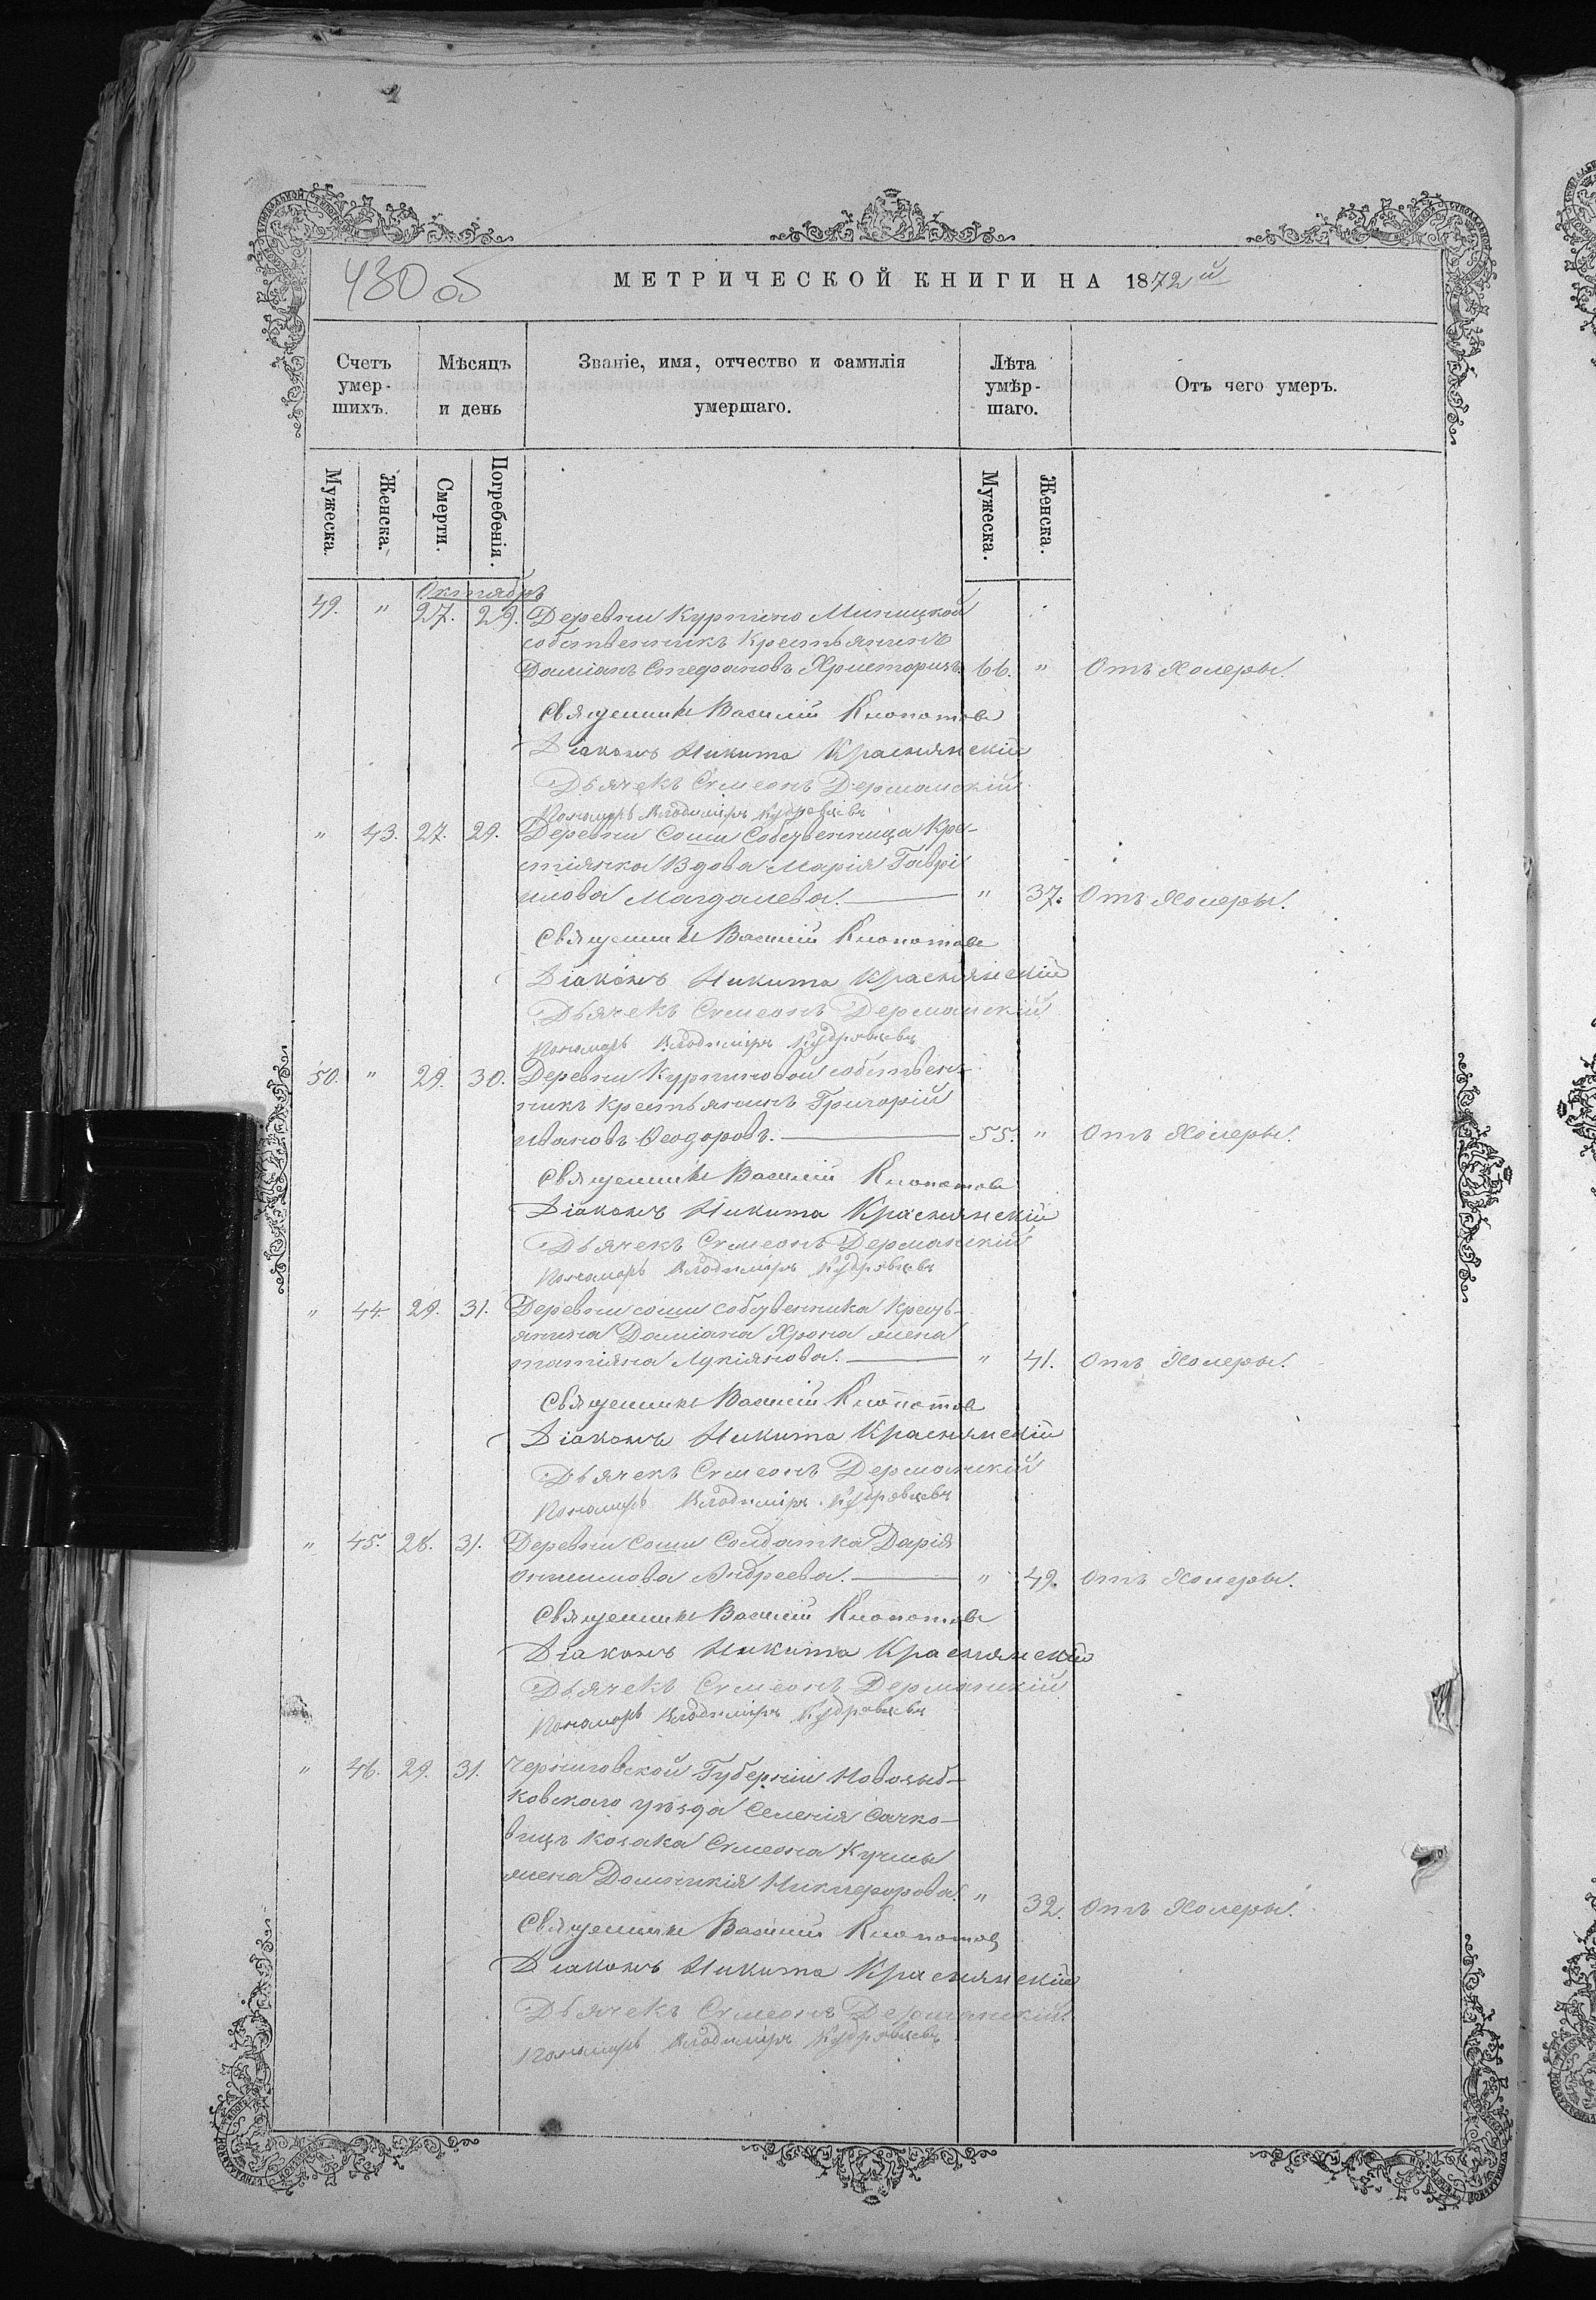 430 об
МЕТРИЧЕСКОЙ КНИГИ НА 1872й
Счетъ умер-шихъ.
Мѣсяцъ и день
Званіе, имя, отчество и фамилія умершаго.
Лѣта умѣр-шаго.
Отъ чего умеръ.
Мужеска. Женска. Смерти. Погребенія. Мужеска. Женска.
Октябрь
49. " 27. 29. Деревни Курпино
собственникъ Крестьянинъ
Даміанъ Стефановъ 66. " Отъ Холеры.
Священникъ Василій Клопотов
Діаконъ Никита Краснянскій
Дьячекъ Симеонъ Дерманскій
Пономарь Владиміръ Кудрявцевъ
" 43. 27. 29. Деревни Соши Собственница Кре-
стіянка Вдова Марія Гаврі
илова Магдалева. " 37. Отъ Холеры.
Священникъ Василій Клопотов
Діаконъ Никита Краснянскій
Дьячекъ Симеонъ Дерманскій
Пономарь Владиміръ Кудрявцевъ
50. " 29. 30. Деревни Курпиновой собствен-
никъ Крестьянинъ Григорій
Ивановъ Ѳеодоровъ. 55. " Отъ Холеры.
Священникъ Василій Клопотов
Діаконъ Никита Краснянскій
Дьячекъ Симеонъ Дерманскій
Пономарь Владиміръ Кудрявцевъ
" 44. 29. 31. Деревни Соши собственника Кресть-
янина Даміана Хрона жена
татіяна Лукіянова. " 41. Отъ Холеры.
Священникъ Василій Клопотов
Діаконъ Никита Краснянскій
Дьячекъ Симеонъ Дерманскій
Пономарь Владиміръ Кудрявцевъ
" 45. 28. 31. Деревни Соши Солдатка Дарія
Онисимова Андреева. " 49. Отъ Холеры.
Священникъ Василій Клопотов
Діаконъ Никита Краснянскій
Дьячекъ Симеонъ Дерманскій
Пономарь Владиміръ Кудрявцевъ
" 46. 29. 31. Черниговской Губерніи Новозыб-
ковскаго уѣзда Селенія Сачко-
вицъ Козака Симеона Кузмы
жена Домникія Никифорова. " 32. Отъ Холеры.
Священникъ Василій Клопотов
Діаконъ Никита Краснянскій
Дьячекъ Симеонъ Дерманскій
Пономарь Владиміръ Кудрявцевъ